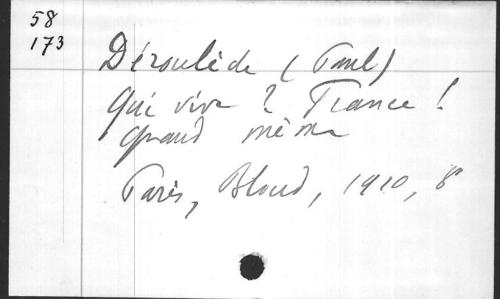 58
173
Déroulède (Paul)
Qui vive ? France !
Quand même
Paris, Bloud, 1910, 8°